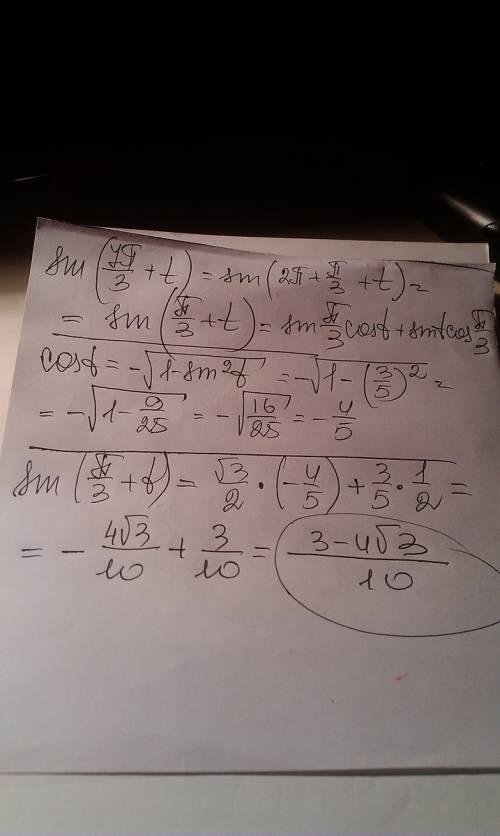 sin(7π/3 + t) = sin(2π + π/3 + t) =
= sin(π/3 + t) = sin π/3 cos t + sin t cos π/3
cos t = -√(1 - sin²t) = -√(1 - (3/5)²) =
= -√(1 - 9/25) = -√(16/25) = -4/5
sin(π/3 + t) = √3/2 · (-4/5) + 3/5 · 1/2 =
= - 4√3/10 + 3/10 = (3 - 4√3)/10